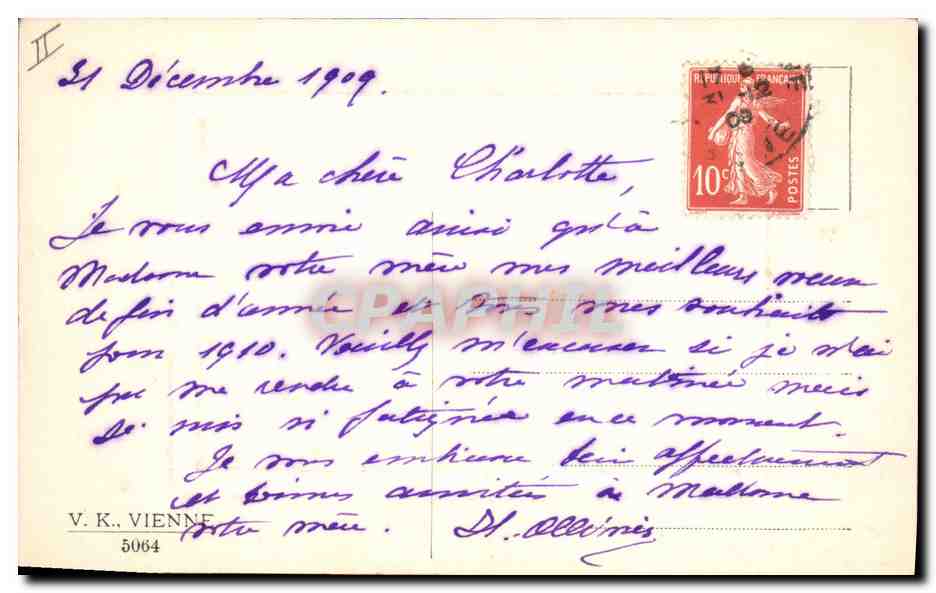 II
31 Décembre 1909.
REPUBLIQUE FRANÇAISE
10c POSTES
09
Ma chère Charlotte,
Je vous envoie ainsi qu'à
Madame votre mère mes meilleurs voeux
de fin d'année et mes souhaits
pour 1910. Veuillez m'excuser si je n'ai
pu me rendre à votre matinée mais
je suis si fatiguée en ce moment.
Je vous embrasse bien affectueusement
et bonnes amitiés à Madame
votre mère.
CPAPHIL
V. K., VIENNE
5064